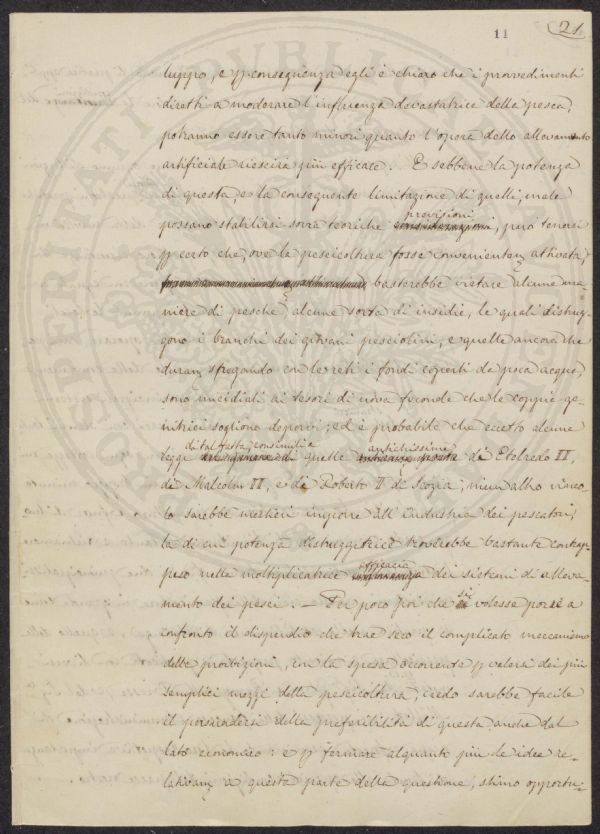 11
21
luppo, e p conseguenza egli è chiaro che i provvedimenti
diretti a moderare l'influenza devastatrice della pesca,
potranno essere tanto minori quanto l'opera dello allevamento
artificiale riescirà più efficace. E sebbene la potenza
di questa, e la conseguente limitazione di quelli, male
possano stabilirsi sovra teoriche previsioni, però tenersi
p certo che, ove la pescicoltura fosse convenientem attivata,
basterebbe vietare alcune ma-
niere di pesche, alcune sorta di insidie, le quali distrug-
gono i branchi dei giovani pesciolini, e quelle ancora che
sfregando con le reti i fondi coperti da poca acqua,
sono micidiali ai tesori di uova feconde che le coppie ge-
nitrici sogliono deporvi; ed è probabile che eccetto alcune
leggi di tal fatta, consimili a quelle antichissime di Etelredo II,
di Malcolm II, e di Roberto II di Scozia, niun altro vinco-
lo sarebbe mestieri imporre all'industria dei pescatori,
la di cui potenza distruggitrice troverebbe bastante contrap-
peso nella moltiplicatrice efficacia dei sistemi di alleva-
mento dei pesci. — Per poco poi che si volesse porre a
confronto il dispendio che trae seco il complicato meccanismo
delle proibizioni, con la spesa occorrente p valersi dei più
semplici mezzi della pescicoltura, credo sarebbe facile
il persuadersi della preferibilità di questa anche dal
lato economico: e p fermare alquanto più le idee re-
lativam a questa parte della questione, stimo opportu-